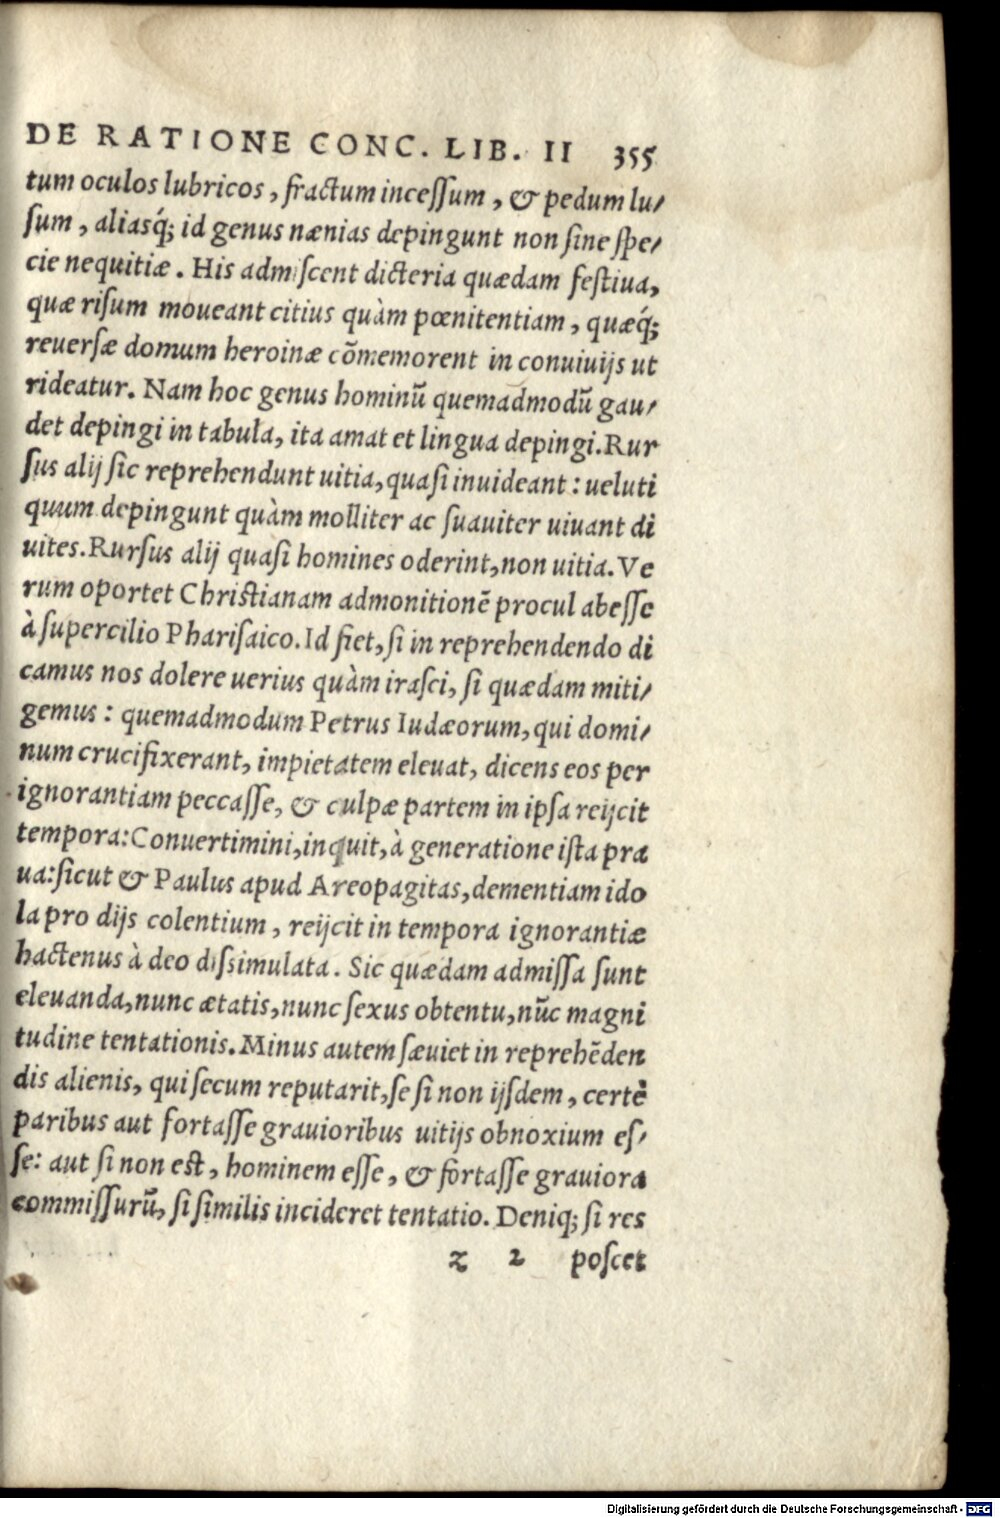 DE RATIONE CONC. LIB. II 355
tum oculos lubricos, fractum incessum, & pedum lu/
sum, aliasq́; id genus nænias depingunt non sine spe/
cie nequitiæ. His admiscent dicteria quædam festiua,
quæ risum moueant citius quàm pœnitentiam, quæq́;
reuersæ domum heroinæ cõmemorent in conuiuijs ut
rideatur. Nam hoc genus hominũ quemadmodũ gau/
det depingi in tabula, ita amat et lingua depingi. Rur
sus alij sic reprehendunt uitia, quasi inuideant: ueluti
quum depingunt quàm molliter ac suauiter uiuant di
uites. Rursus alij quasi homines oderint, non uitia. Ve
rum oportet Christianam admonitionẽ procul abesse
à supercilio Pharisaico. Id fiet, si in reprehendendo di
camus nos dolere uerius quàm irasci, si quædam miti/
gemus: quemadmodum Petrus Iudæorum, qui domi/
num crucifixerant, impietatem eleuat, dicens eos per
ignorantiam peccasse, & culpæ partem in ipsa reijcit
tempora: Conuertimini, inquit, à generatione ista pra
ua: sicut & Paulus apud Areopagitas, dementiam ido
la pro dijs colentium, reijcit in tempora ignorantiæ
hactenus à deo dissimulata. Sic quædam admissa sunt
eleuanda, nunc ætatis, nunc sexus obtentu, nũc magni
tudine tentationis. Minus autem sæuiet in reprehẽden
dis alienis, qui secum reputarit, se si non ijsdem, certè
paribus aut fortasse grauioribus uitijs obnoxium es/
se: aut si non est, hominem esse, & fortasse grauiora
commissurũ, si similis incideret tentatio. Deniq; si res
z 2 poscet
Digitalisierung gefördert durch die Deutsche Forschungsgemeinschaft - DFG